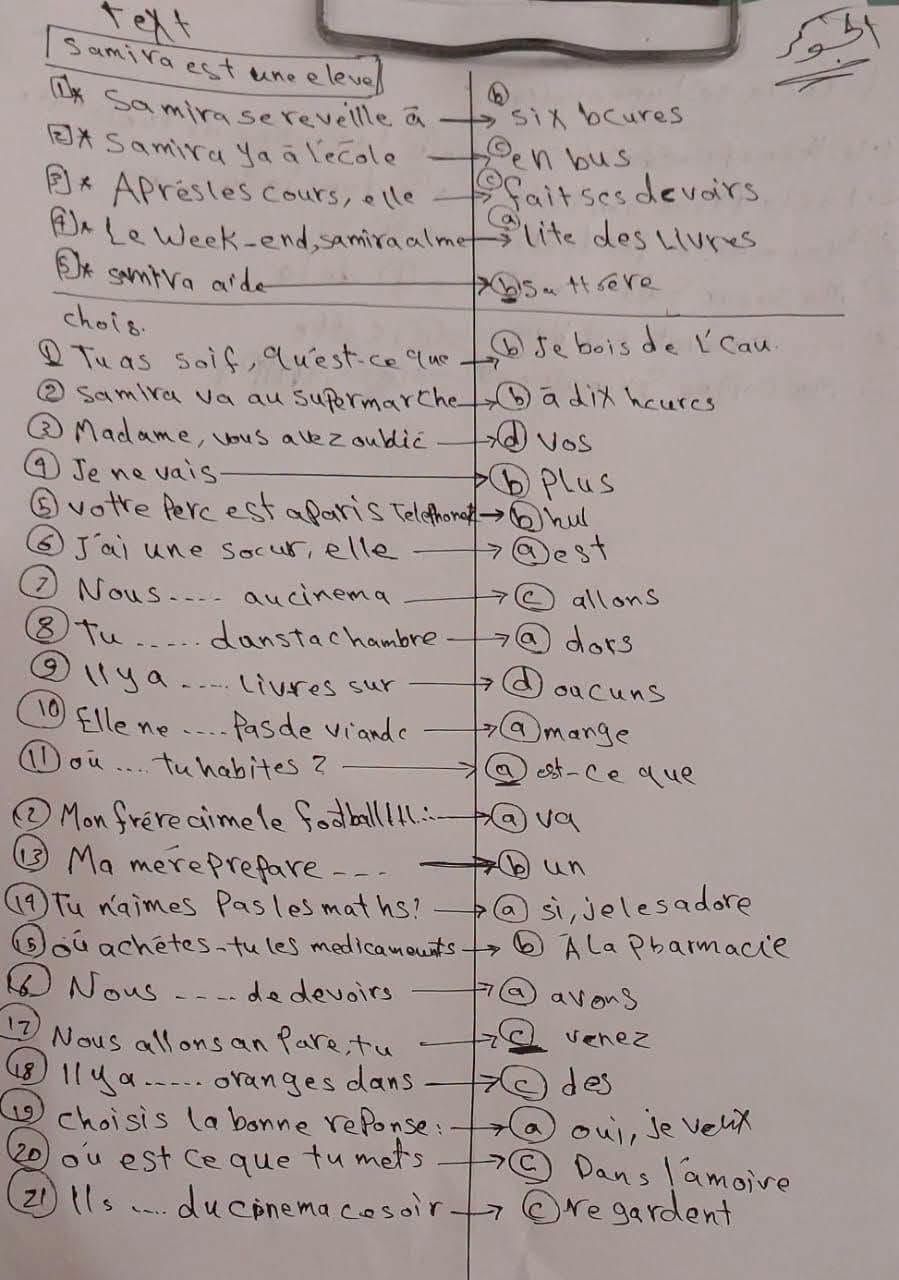 Text
Samira est une eleve
1* Samira se reveille à → b six bcures
2* Samira ya à l'école → c en bus
3* Aprésles cours, elle → c fait scs devoirs
4* Le Week-end, samira alme → a lite des Livres
5* samira aide → b sa ttsére
chois.
1 Tu as soif, qu'est-ce que → b Je bois de l'cau.
2 Samira va au supermarche → b à dix hcures
3 Madame, vous avez oublié → d vos
4 Je ne vais → b plus
5 votre perc est a paris Telephonez → b hul
6 J'ai une socur, elle → a est
7 Nous .... au cinema → c allons
8 Tu ..... dans ta chambre → a dors
9 Il y a ..... livres sur → d oucuns
10 Elle ne .... Pas de viandc → a mange
11 où .... tu habites ? → a est-ce que
12 Mon frére aime le football → a va
13 Ma mére prepare --- → b un
14 Tu n'aimes Pas les maths? → a si, je les adore
15 où achétes-tu les medicaments → b À La Pharmacie
16 Nous ---- de devoirs → a avons
17 Nous allons an Parc, tu → c venez
18 Il y a ..... oranges dans → c des
19 choisis la bonne reponse: → a oui, je veux
20 où est ce que tu mets → c Dans l'amoire
21 Ils .... du cinema ce soir → c regardent